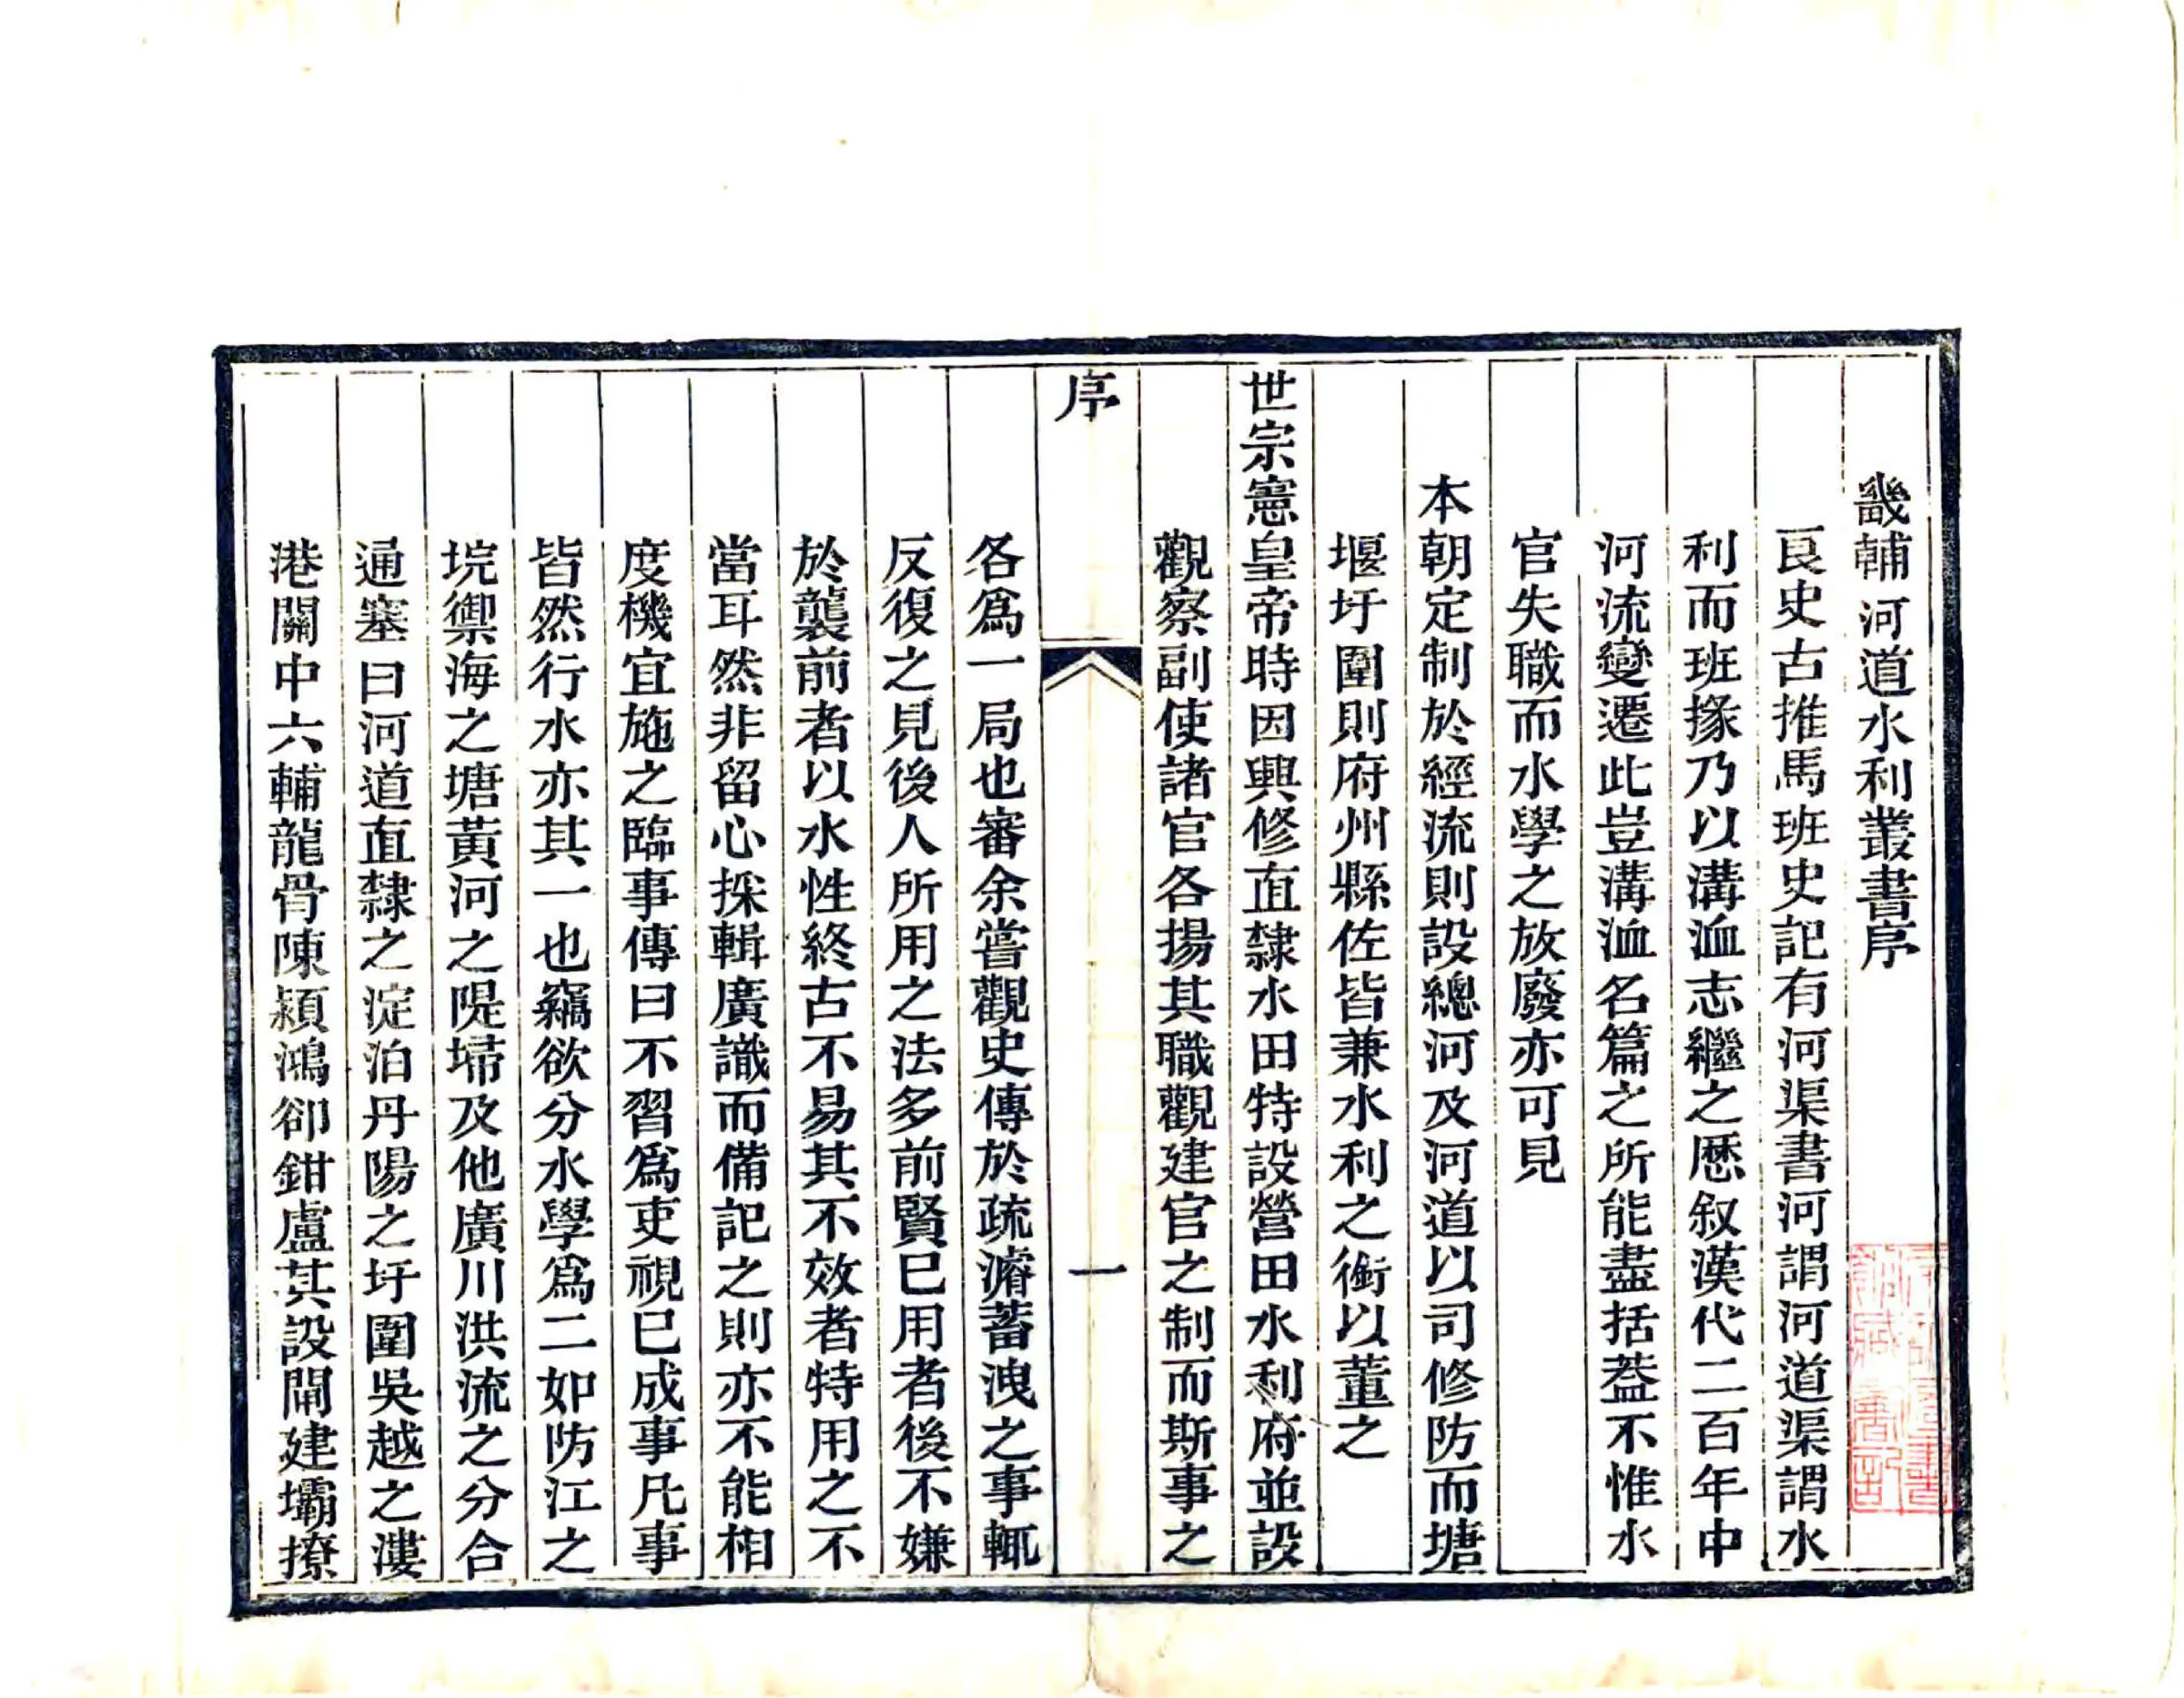 畿輔河道水利叢書序
良史古推馬班史記有河渠書河謂河道渠謂水
利而班掾乃以溝洫志繼之歷叙漢代二百年中
河流變遷此豈溝洫名篇之所能盡括葢不惟水
官失職而水學之放廢亦可見
本朝定制於經流則設總河及河道以司修防而塘
堰圩圍則府州縣佐皆兼水利之銜以董之
世宗憲皇帝時因興修直隸水田特設營田水利府並設
觀察副使諸官各揚其職觀建官之制而斯事之
序
一
各爲一局也審余嘗觀史傳於疏濬蓄洩之事輒
反復之見後人所用之法多前賢已用者後不嫌
於襲前者以水性終古不易其不效者特用之不
當耳然非留心採輯廣識而備記之則亦不能相
度機宜施之臨事傳曰不習爲吏視已成事凡事
皆然行水亦其一也竊欲分水學爲二如防江之
垸禦海之塘黃河之隄埽及他廣川洪流之分合
通塞曰河道直隸之淀泊丹陽之圩圍吳越之漊
港關中六輔龍骨陳潁鴻郤鉗盧其設閘建壩撩